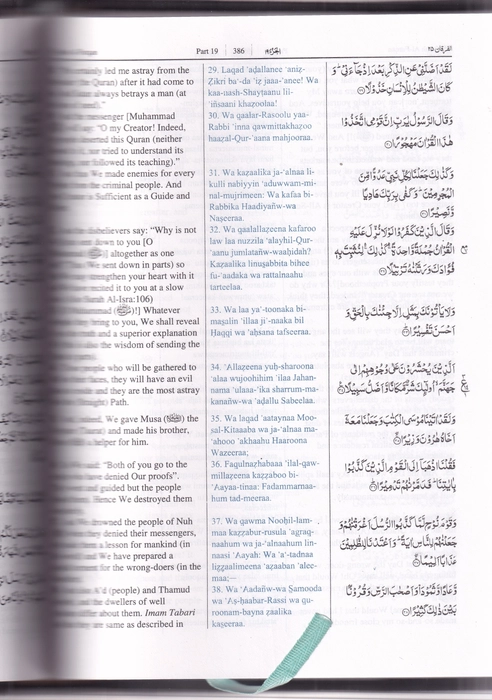 Part 19 | 386 الفرقان ٢٥
led me astray from the
Quran) after it had come to
always betrays a man (at
messenger [Muhammad
"O my Creator! Indeed,
deserted this Quran (neither
nor tried to understand its
followed its teaching)."
We made enemies for every
the criminal people. And
Sufficient as a Guide and
disbelievers say: "Why is not
down to you [O
altogether as one
We sent down in parts) so
strengthen your heart with it
recited it to you at a slow
Al-Isra:106)
Whatever
bring to you, We shall reveal
and a superior explanation
the wisdom of sending the
people who will be gathered to
faces, they will have an evil
and they are the most astray
Path.
We gave Musa (ﷺ) the
and made his brother,
a helper for him.
"Both of you go to the
have denied Our proofs".
guided but the people
Hence We destroyed them
drowned the people of Nuh
they denied their messengers,
a lesson for mankind (in
We have prepared a
for the wrong-doers (in the
A'd (people) and Thamud
the dwellers of well
about them. Imam Tabari
are same as described in
29. Laqad 'aḍallanee 'aniẓ-
Zikri ba-'da 'iẓ jaaa-'anee! Wa
kaa-nash-Shayṭaanu lil-
'iñsaani khazoolaa!
30. Wa qaalar-Rasoolu yaa-
Rabbi 'inna qawmittakhazoo
haazal-Qur-'aana mahjooraa.
31. Wa kazaalika ja-'alnaa li-
kulli nabiyyin 'aduwwam-mi-
nal-mujrimeen: Wa kafaa bi-
Rabbika Haadiyañw-wa
Naṣeeraa.
32. Wa qaalallazeena kafaroo
law laa nuzzila 'alayhil-Qur-
'aanu jumlatañw-waaḥidah?
Kazaalika linuṣabbita bihee
fu-'aadaka wa rattalnaahu
tarteelaa.
33. Wa laa ya'-toonaka bi-
maṣalin 'illaa ji'-naaka bil
Ḥaqqi wa 'aḥsana tafseeraa.
34. 'Allazeena yuḥ-sharoona
'alaa wujoohihim 'ilaa Jahan-
nama 'ulaaa-'ika sharrum-ma-
kanañw-wa 'aḍallu Sabeelaa.
35. Wa laqad 'aataynaa Moo-
sal-Kitaaba wa ja-'alnaa ma-
'ahooo 'akhaahu Haaroona
Wazeeraa;
36. Faqulnaẓhabaaa 'ilal-qaw-
millazeena kazzaboo bi-
'Aayaa-tinaa: Fadammarnaa-
hum tad-meeraa.
37. Wa qawma Nooḥil-lam-
maa kazzabur-rusula 'agraq-
naahum wa ja-'alnaahum lin-
naasi 'Aayah: Wa 'a'-tadnaa
liẓẓaalimeena 'aẓaaban 'alee-
maa;—
38. Wa 'Aadañw-wa Ṣamooda
wa 'Aṣ-ḥaabar-Rassi wa qu-
roonam-bayna zaalika
kaṣeeraa.
لَقَدْ اَضَلَّنِيْ عَنِ الذِّكْرِ بَعْدَ اِذْ جَآءَنِيْ ۗ وَ
كَانَ الشَّيْطٰنُ لِلْاِنْسَانِ خَذُوْلًا
وَقَالَ الرَّسُوْلُ يٰرَبِّ اِنَّ قَوْمِي اتَّخَذُوْا
هٰذَا الْقُرْاٰنَ مَهْجُوْرًا
وَكَذٰلِكَ جَعَلْنَا لِكُلِّ نَبِيٍّ عَدُوًّا مِّنَ
الْمُجْرِمِيْنَ ۗ وَكَفٰى بِرَبِّكَ هَادِيًا
وَّنَصِيْرًا
وَقَالَ الَّذِيْنَ كَفَرُوْا لَوْلَا نُزِّلَ عَلَيْهِ
الْقُرْاٰنُ جُمْلَةً وَّاحِدَةً ۛ كَذٰلِكَ ۛ لِنُثَبِّتَ بِهٖ
فُؤَادَكَ وَرَتَّلْنٰهُ تَرْتِيْلًا
وَلَا يَاْتُوْنَكَ بِمَثَلٍ اِلَّا جِئْنٰكَ بِالْحَقِّ وَ
اَحْسَنَ تَفْسِيْرًا
اَلَّذِيْنَ يُحْشَرُوْنَ عَلٰى وُجُوْهِهِمْ اِلٰى
جَهَنَّمَ ۙ اُولٰٓئِكَ شَرٌّ مَّكَانًا وَّاَضَلُّ سَبِيْلًا
وَلَقَدْ اٰتَيْنَا مُوْسَى الْكِتٰبَ وَجَعَلْنَا مَعَهٗٓ
اَخَاهُ هٰرُوْنَ وَزِيْرًا
فَقُلْنَا اذْهَبَآ اِلَى الْقَوْمِ الَّذِيْنَ كَذَّبُوْا
بِاٰيٰتِنَا ۗ فَدَمَّرْنٰهُمْ تَدْمِيْرًا
وَقَوْمَ نُوْحٍ لَّمَّا كَذَّبُوا الرُّسُلَ اَغْرَقْنٰهُمْ وَ
جَعَلْنٰهُمْ لِلنَّاسِ اٰيَةً ۗ وَاَعْتَدْنَا لِلظّٰلِمِيْنَ
عَذَابًا اَلِيْمًا
وَّعَادًا وَّثَمُوْدَا۟ وَاَصْحٰبَ الرَّسِّ وَقُرُوْنًۢا
بَيْنَ ذٰلِكَ كَثِيْرًا